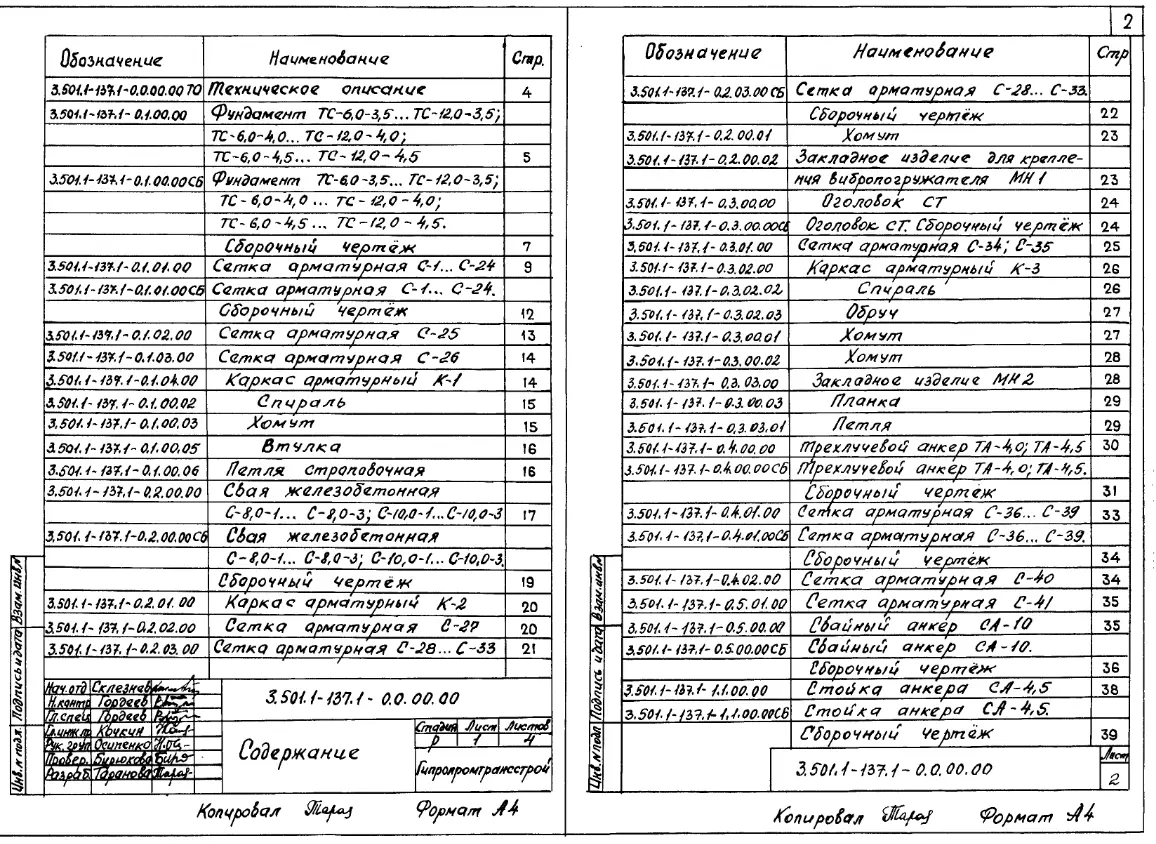 Обозначение Наименование Стр.
3.501.1-137.1-0.0.00.00 ТО Техническое описание 4
3.501.1-137.1-0.1.00.00 Фундамент ТС-6,0-3,5... ТС-12,0-3,5;
ТС-6,0-4,0... ТС-12,0-4,0;
ТС-6,0-4,5... ТС-12,0-4,5 5
3.501.1-137.1-0.1.00.00СБ Фундамент ТС-6,0-3,5... ТС-12,0-3,5;
ТС-6,0-4,0... ТС-12,0-4,0;
ТС-6,0-4,5... ТС-12,0-4,5.
Сборочный чертёж 7
3.501.1-137.1-0.1.01.00 Сетка арматурная С-1... С-24 9
3.501.1-137.1-0.1.01.00СБ Сетка арматурная С-1... С-24.
Сборочный чертёж 12
3.501.1-137.1-0.1.02.00 Сетка арматурная С-25 13
3.501.1-137.1-0.1.03.00 Сетка арматурная С-26 14
3.501.1-137.1-0.1.04.00 Каркас арматурный К-1 14
3.501.1-137.1-0.1.00.02 Спираль 15
3.501.1-137.1-0.1.00.03 Хомут 15
3.501.1-137.1-0.1.00.05 Втулка 16
3.501.1-137.1-0.1.00.06 Петля строповочная 16
3.501.1-137.1-0.2.00.00 Свая железобетонная
С-8,0-1... С-8,0-3; С-10,0-1... С-10,0-3 17
3.501.1-137.1-0.2.00.00СБ Свая железобетонная
С-8,0-1... С-8,0-3; С-10,0-1... С-10,0-3.
Сборочный чертёж 19
3.501.1-137.1-0.2.01.00 Каркас арматурный К-2 20
3.501.1-137.1-0.2.02.00 Сетка арматурная С-27 20
3.501.1-137.1-0.2.03.00 Сетка арматурная С-28... С-33 21
Инв.№ подл. Подпись и дата Взам.инв.№
Нач.отд Склезнев
Н.контр Гордеев
Гл.спец Гордеев
Гл.инж.пр Кочкин
Рук.груп Осипенко
Провер. Бирюкова
Разраб. Таранова
3.501.1-137.1-0.0.00.00
Содержание
Стадия Лист Листов
Р 1 4
Гипропромтрансстрой
Копировал Тараз Формат А4
2
Обозначение Наименование Стр
3.501.1-137.1-0.2.03.00СБ Сетка арматурная С-28... С-33.
Сборочный чертёж 22
3.501.1-137.1-0.2.00.01 Хомут 23
3.501.1-137.1-0.2.00.02 Закладное изделие для крепле-
ния вибропогружателя МН1 23
3.501.1-137.1-0.3.00.00 Оголовок СТ 24
3.501.1-137.1-0.3.00.00СБ Оголовок СТ. Сборочный чертёж 24
3.501.1-137.1-0.3.01.00 Сетка арматурная С-34; С-35 25
3.501.1-137.1-0.3.02.00 Каркас арматурный К-3 26
3.501.1-137.1-0.3.02.02 Спираль 26
3.501.1-137.1-0.3.02.03 Обруч 27
3.501.1-137.1-0.3.00.01 Хомут 27
3.501.1-137.1-0.3.00.02 Хомут 28
3.501.1-137.1-0.3.03.00 Закладное изделие МН2 28
3.501.1-137.1-0.3.00.03 Планка 29
3.501.1-137.1-0.3.03.01 Петля 29
3.501.1-137.1-0.4.00.00 Трехлучевой анкер ТА-4,0; ТА-4,5 30
3.501.1-137.1-0.4.00.00СБ Трехлучевой анкер ТА-4,0; ТА-4,5.
Сборочный чертёж 31
3.501.1-137.1-0.4.01.00 Сетка арматурная С-36... С-39 33
3.501.1-137.1-0.4.01.00СБ Сетка арматурная С-36... С-39.
Сборочный чертёж 34
3.501.1-137.1-0.4.02.00 Сетка арматурная С-40 34
3.501.1-137.1-0.5.01.00 Сетка арматурная С-41 35
3.501.1-137.1-0.5.00.00 Свайный анкер СА-10 35
3.501.1-137.1-0.5.00.00СБ Свайный анкер СА-10.
Сборочный чертёж 36
3.501.1-137.1-1.1.00.00 Стойка анкера СА-4,5 38
3.501.1-137.1-1.1.00.00СБ Стойка анкера СА-4,5.
Сборочный чертёж 39
Инв.№ подл Подпись и дата Взам.инв.№
3.501.1-137.1-0.0.00.00
Лист
2
Копировал Тараз Формат А4